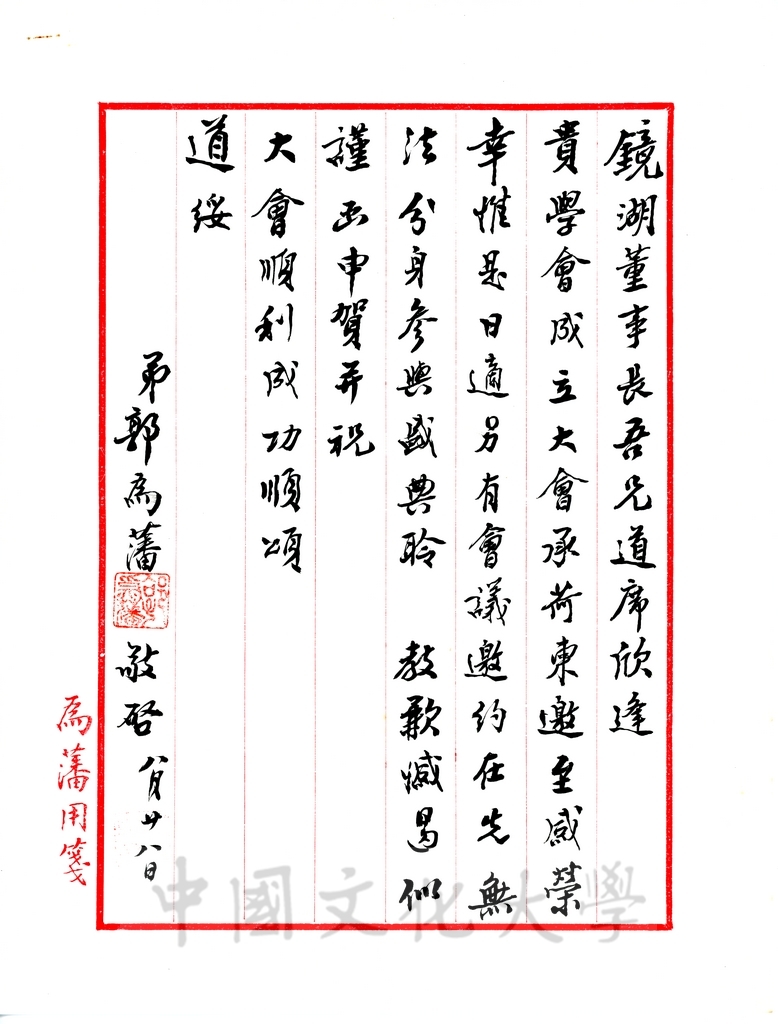 鏡湖董事長吾兄道席欣逢
貴學會成立大會承荷柬邀至感榮
幸惟是日適另有會議邀約在先無
法分身參與盛典聆 教歉憾曷似
謹函申賀并祝
大會順利成功順頌
道綏
弟郭為藩 敬啓 八月廿八日
為藩用箋
中國文化大學